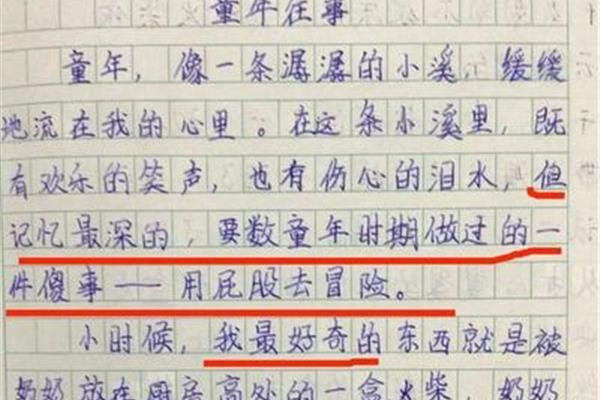 童年往事
童年，像一条潺潺的小溪，缓缓
地流在我的心里。在这条小溪里，既
有欢乐的笑声，也有伤心的泪水，但
记忆最深的，要数童年时期做过的一
件傻事——用屁股去冒险。
小时候，我最好奇的东西就是被
奶奶放在厨房高处的一盒火柴，奶奶